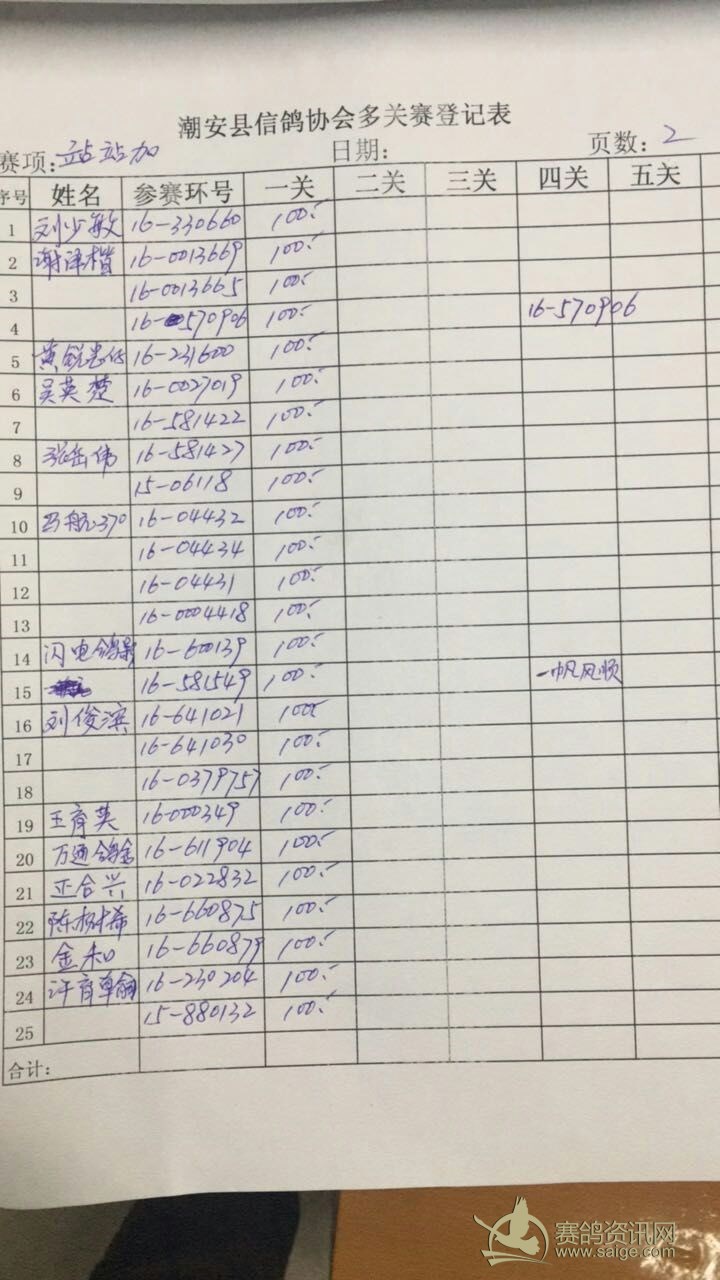 潮安县信鸽协会多关赛登记表
赛项: 站站加 日期: 页数: 2
序号 姓名 参赛环号 一关 二关 三关 四关 五关
1 刘少敏 16-330660 100.-
2 谢泽楷 16-0013669 100.-
3 16-0013665 100.-
4 16-570906 100.- 16-570906
5 黄锐忠 16-231600 100.-
6 吴英楚 16-0027019 100.-
7 16-581422 100.-
8 张岳伟 16-581427 100.-
9 15-06118 100.-
10 马航370 16-04432 100.-
11 16-04434 100.-
12 16-04431 100.-
13 16-0004418 100.-
14 闪电鸽 16-600139 100.-
15 16-581549 100.- 一帆风顺
16 刘俊滨 16-641021 100
17 16-641030 100.-
18 16-0379757 100.-
19 王育英 16-000349 100.-
20 万通鸽舍 16-611904 100.-
21 正合兴 16-022832 100.-
22 陈树希 16-660875 100.-
23 金和 16-660879 100.-
24 许育 16-230204 100.-
25 15-880132 100.-
合计:
赛鸽资讯网
www.saige.com